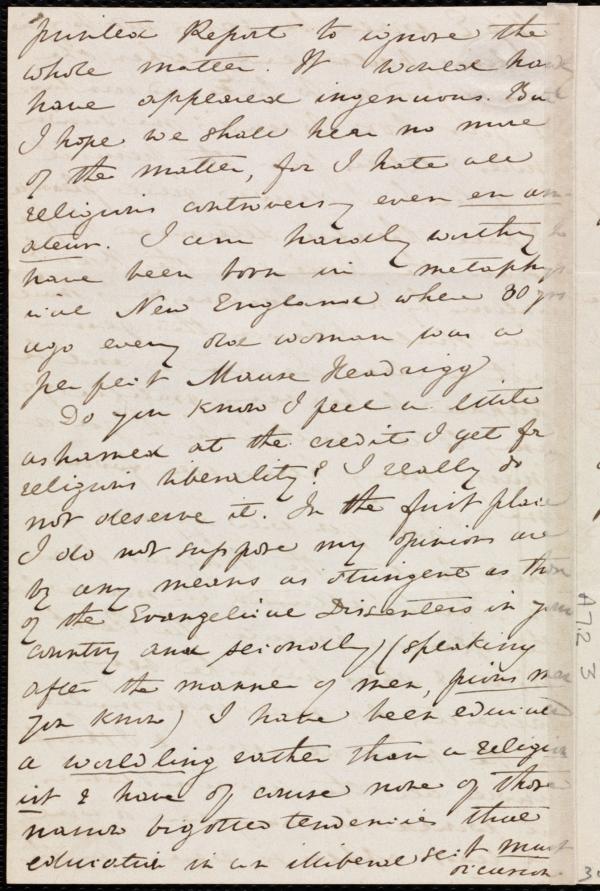 printed Report to ignore the
whole matter. It would have
have appeared ingenuous. But
I hope we shall hear no more
of the matter, for I hate all
religious controversy even en am-
ateur. I am hardly worthy to
have been born in metaphys
ical New England where 30 yrs
ago every old woman was a
perfect Mause Headrigg
Do you know I feel a little
ashamed at the credit I get for
religious liberality? I really do
not deserve it. In the first place
I do not suppose my opinions are
by any means as stringent as those
of the Evangelical Dissenters in your
country and secondly (speaking
after the manner of men, pious men
you know) I have been educated
a worldling rather than a religion
ist & have of course none of those
narrow bigotted tendencies that
education in an illiberal sect must
occasion.
A7.2 3